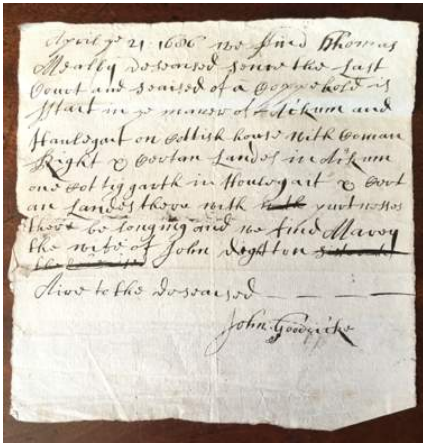 April ye 21: 1686 we find Thomas
Mealby deseased sence the Last
Court and seaised of a Coppehold is
Start in ye maner of Ackum and
Houlegait on Cottish house with Coman
Right & Certan Landes in Ackum
one Cottig garth in Houlegait & Cert
an Landes there with purtnesses
there be longing and we find Marey
the wife of John Deghton
Aire to the deseased
John Goodricke